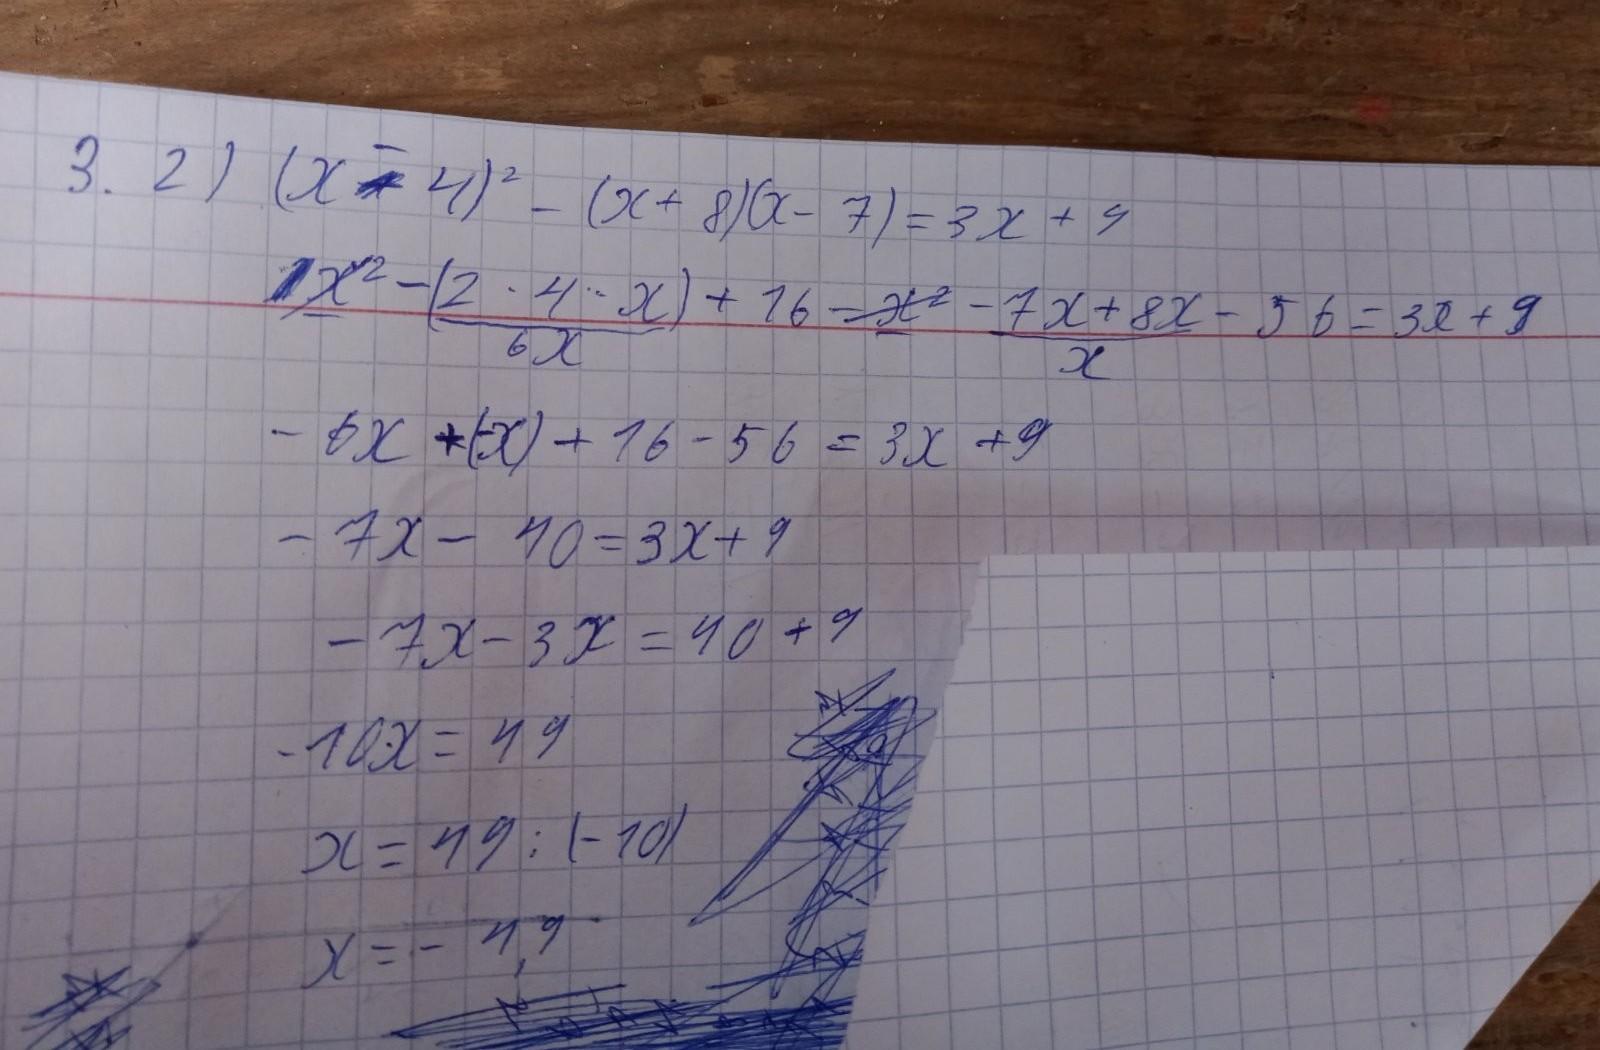 3. 2) (x - 4)² - (x + 8)(x - 7) = 3x + 9
x² - (2 · 4 · x) + 16 - x² - 7x + 8x - 56 = 3x + 9
6x x
- 6x + (-x) + 16 - 56 = 3x + 9
- 7x - 40 = 3x + 9
- 7x - 3x = 40 + 9
-10x = 49
x = 49 : (-10)
x = - 4,9